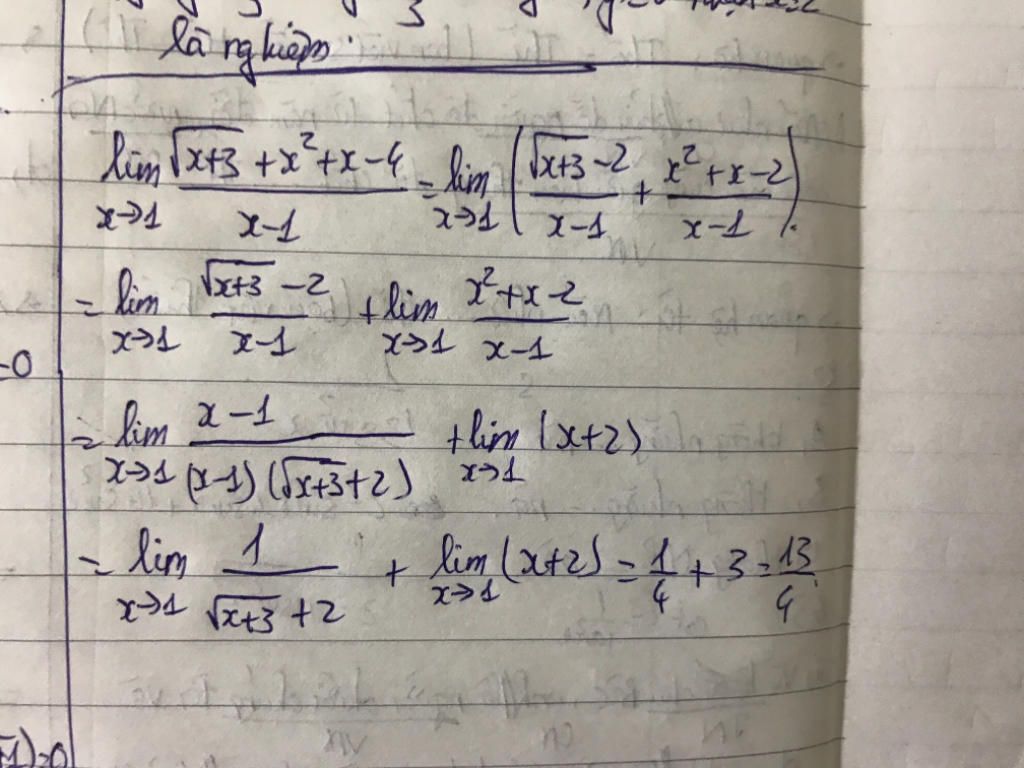 là nghiệm.
lim x→1 (√(x+3) + x² + x - 4)/(x-1) = lim x→1 ((√(x+3) - 2)/(x-1) + (x² + x - 2)/(x-1)).
= lim x→1 (√(x+3) - 2)/(x-1) + lim x→1 (x² + x - 2)/(x-1)
= lim x→1 (x-1)/((x-1)(√(x+3)+2)) + lim x→1 (x+2)
= lim x→1 1/(√(x+3)+2) + lim x→1 (x+2) = 1/4 + 3 = 13/4.